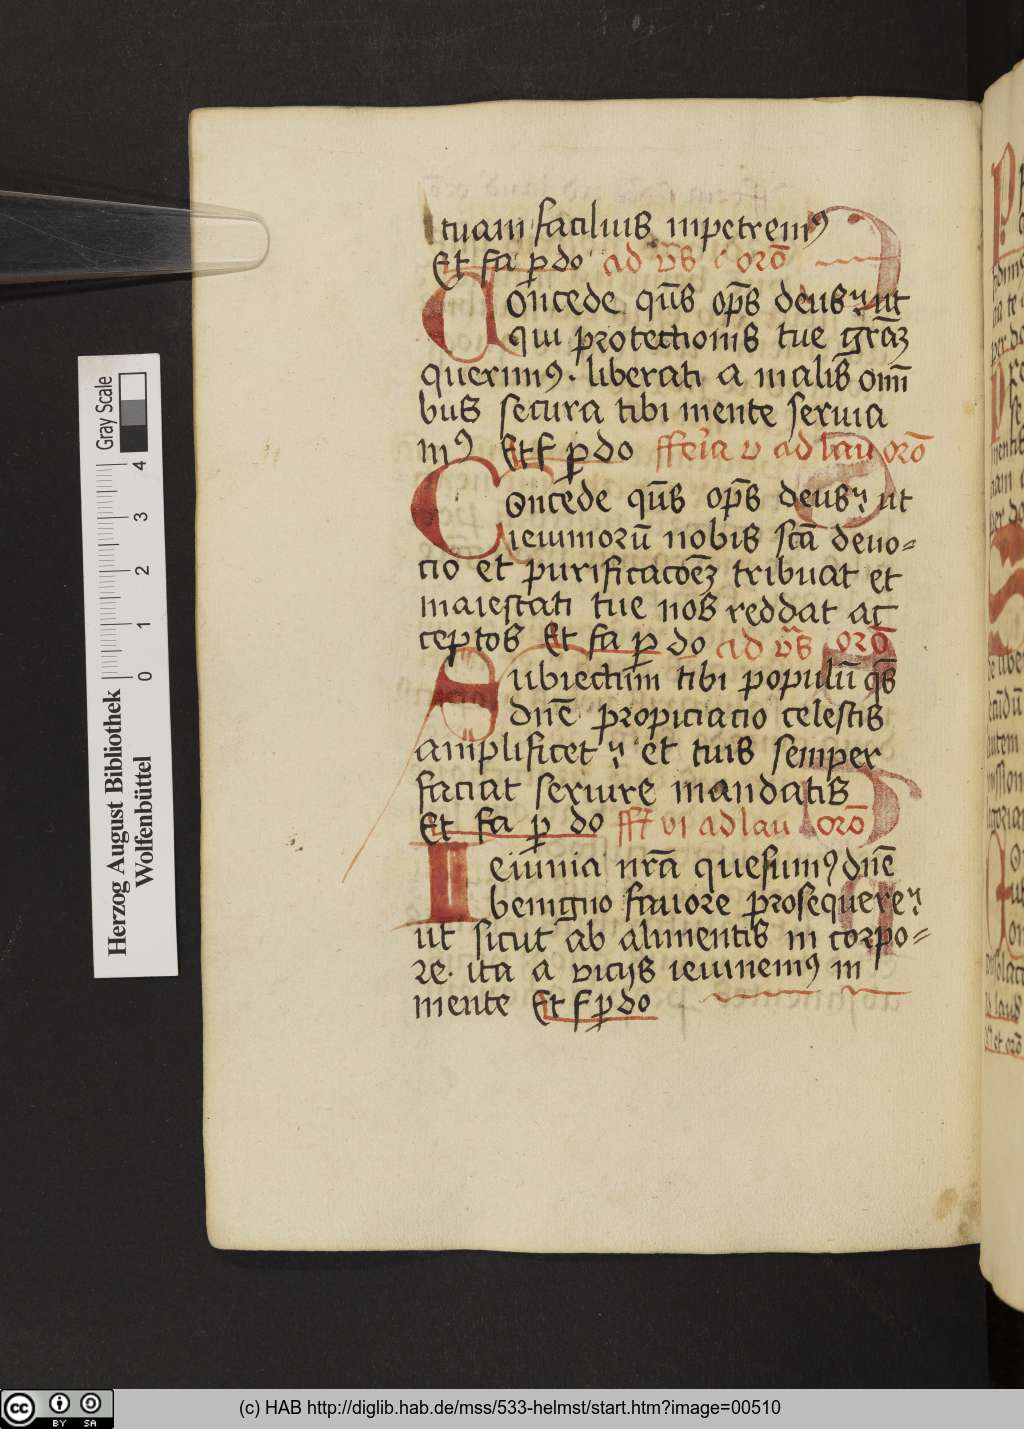 tuam facilius inpetremꝰ
Et fa ꝑ do ad vs̄ orō
Concede qūs op̄s deus ut
qui protectionis tue grāꝫ
querimꝰ. liberati a malis om̄i
bus secura tibi mente seruia
mꝰ Et f ꝑ do ffer̄ia v ad lau orō
Concede qūs op̄s deus ut
ieiuniorū nobis scā deuo⸗
cio et purificacōēꝫ tribuat et
maiestati tue nos reddat ac
ceptos Et fa ꝑ do ad vs̄ orō
Subiectum tibi populū qs̄
dn̄e propiciacio celestis
amplificet et tuis semper
faciat seruire mandatis
Et fa ꝑ do ff vi ad lau orō
Ieiunia nrā quesumꝰ dn̄e
benigno fauore prosequere
ut sicut ab alimentis in corpo⸗
re. ita a vicijs ieiunemꝰ in
mente Et f ꝑ do
Gray Scale
4
3
2
1
0
Herzog August Bibliothek
Wolfenbüttel
(c) HAB http://diglib.hab.de/mss/533-helmst/start.htm?image=00510
cc BY SA